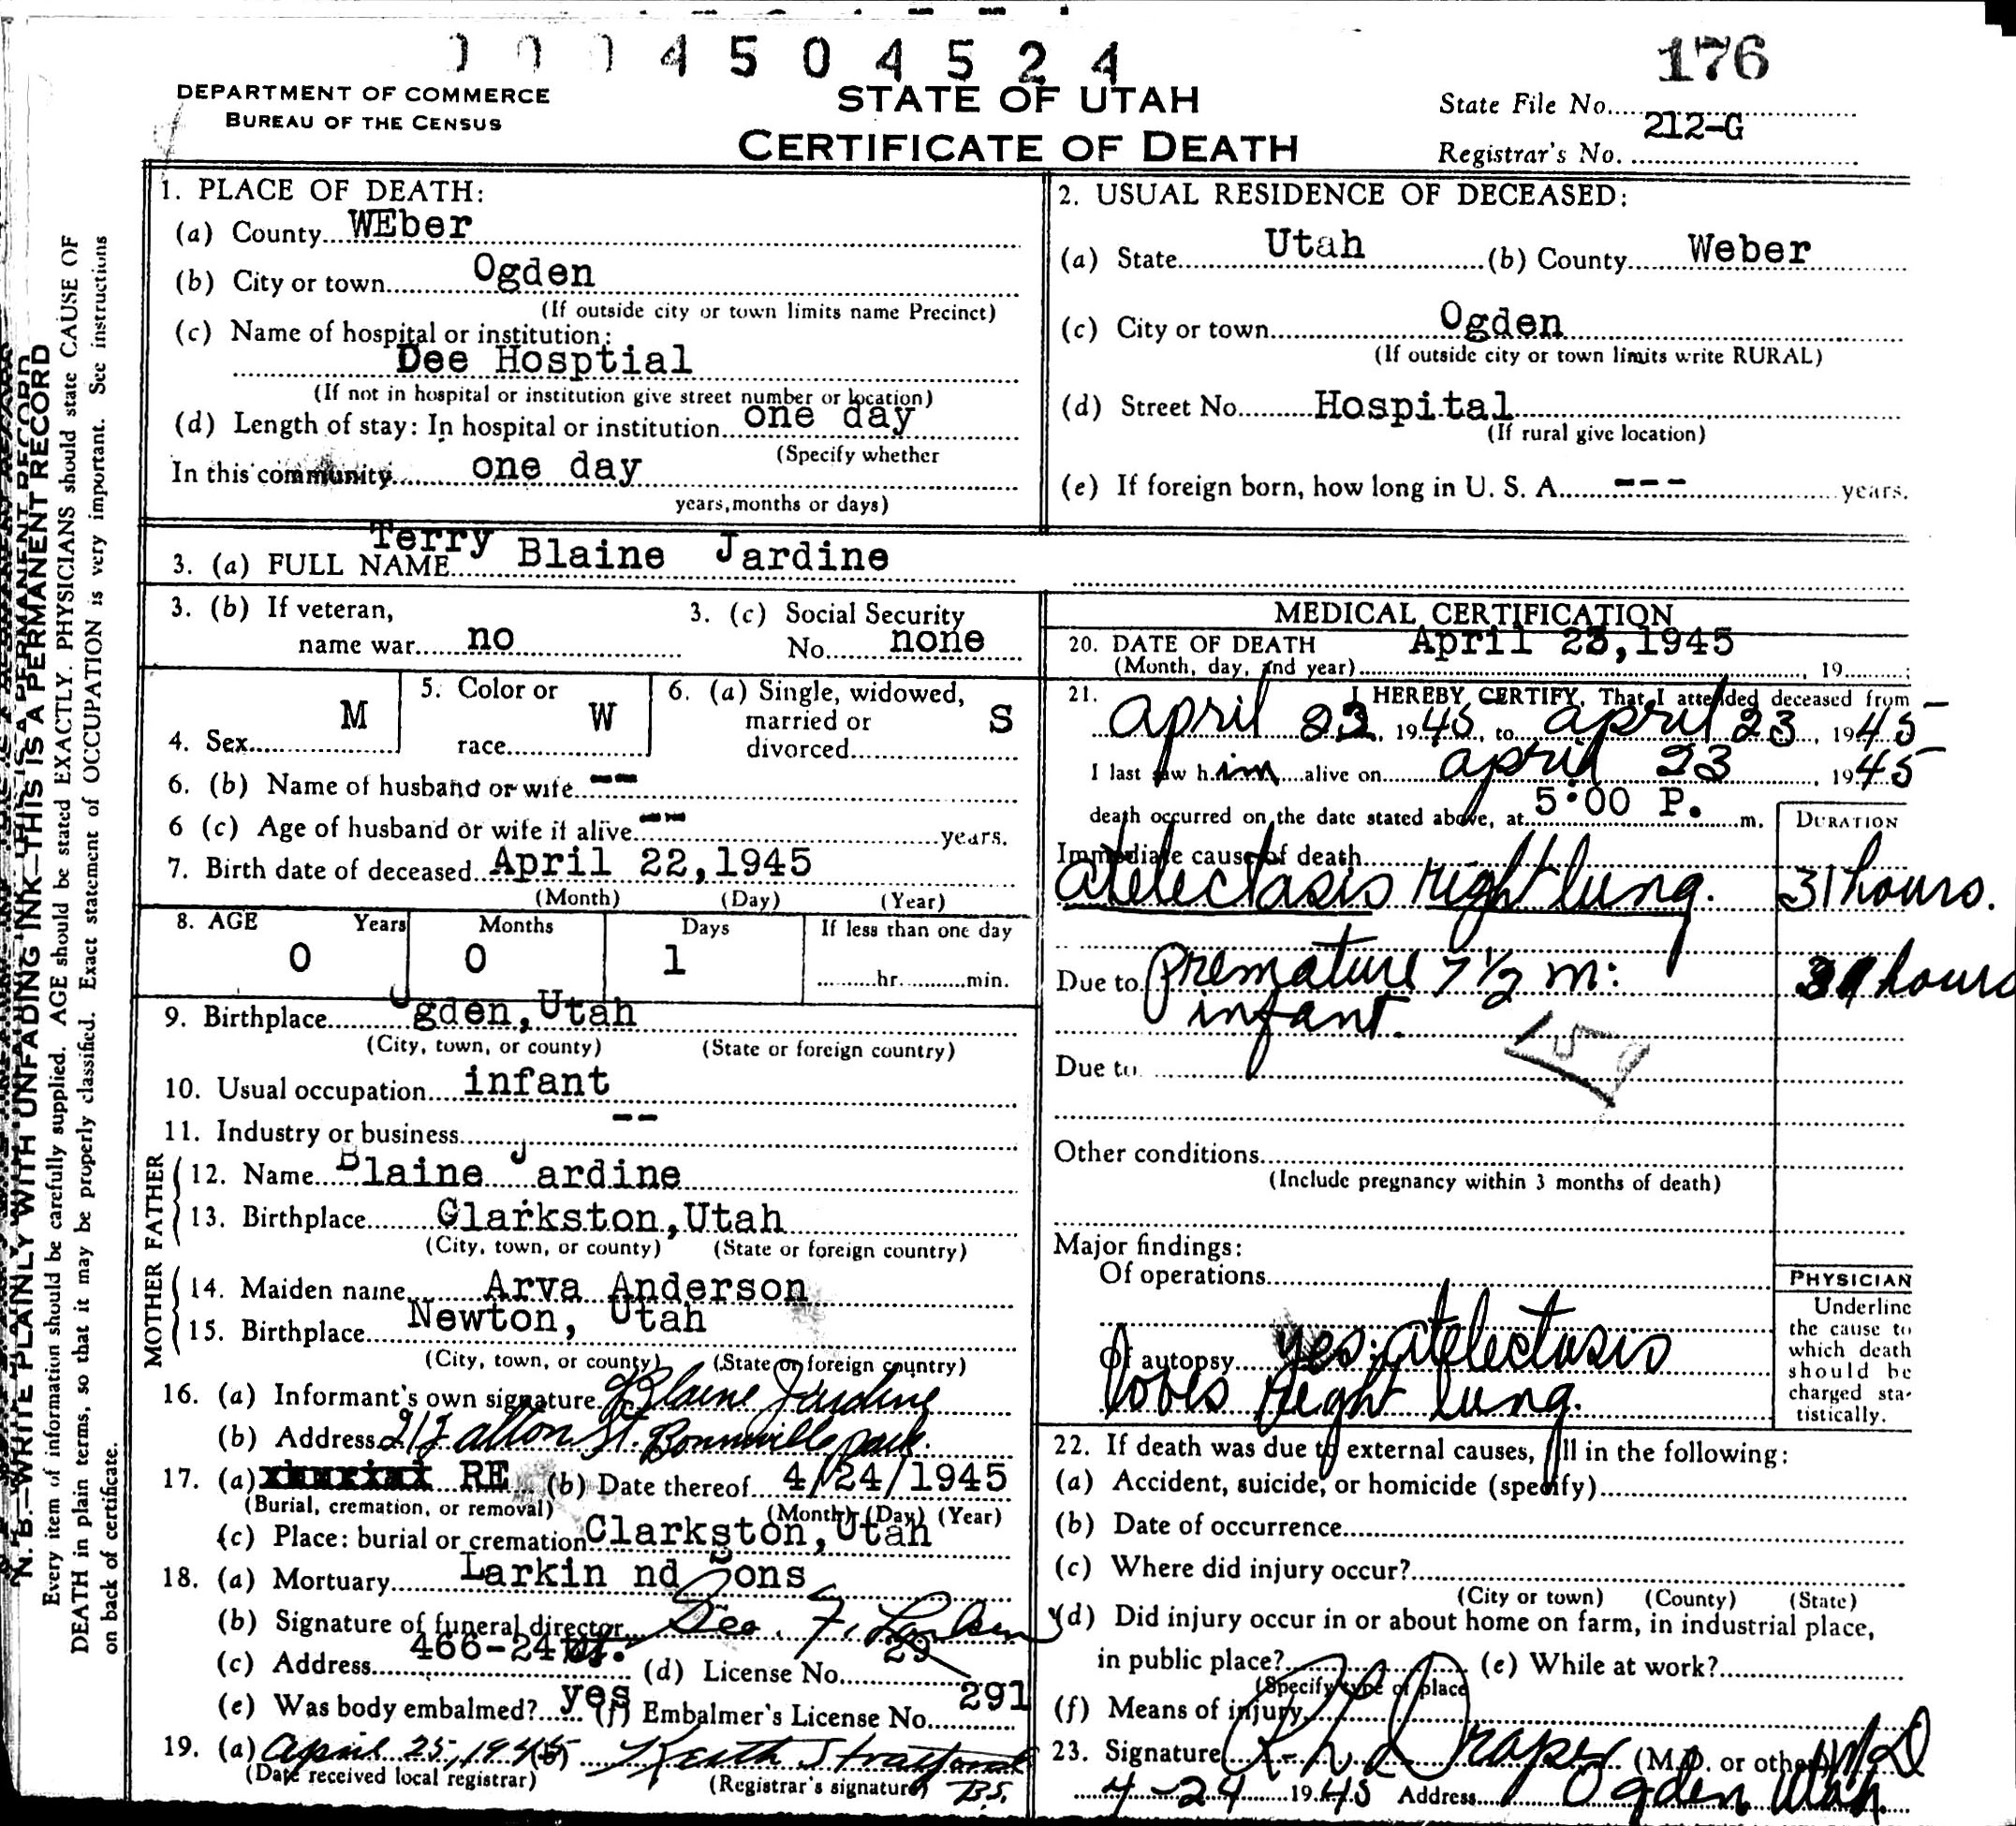 0004504524
176
DEPARTMENT OF COMMERCE
BUREAU OF THE CENSUS
STATE OF UTAH
CERTIFICATE OF DEATH
State File No.
212-G
Registrar's No.
N. B.—WRITE PLAINLY WITH UNFADING INK—THIS IS A PERMANENT RECORD
Every item of information should be carefully supplied. AGE should be stated EXACTLY. PHYSICIANS should state CAUSE OF
DEATH in plain terms, so that it may be properly classified. Exact statement of OCCUPATION is very important. See instructions
on back of certificate.
1. PLACE OF DEATH:
(a) County WEber
(b) City or town Ogden
(If outside city or town limits name Precinct)
(c) Name of hospital or institution:
Dee Hosptial
(If not in hospital or institution give street number or location)
(d) Length of stay: In hospital or institution one day
(Specify whether
In this community one day
years, months or days)
2. USUAL RESIDENCE OF DECEASED:
(a) State Utah (b) County Weber
(c) City or town Ogden
(If outside city or town limits write RURAL)
(d) Street No. Hospital
(If rural give location)
(e) If foreign born, how long in U. S. A. --- years.
3. (a) FULL NAME Terry Blaine Jardine
3. (b) If veteran,
name war no
3. (c) Social Security
No. none
4. Sex M
5. Color or
race W
6. (a) Single, widowed,
married or
divorced S
6. (b) Name of husband or wife --
6 (c) Age of husband or wife if alive -- years.
7. Birth date of deceased April 22,1945
(Month) (Day) (Year)
8. AGE Years Months Days If less than one day
0 0 1 hr. min.
9. Birthplace Ogden,Utah
(City, town, or county) (State or foreign country)
10. Usual occupation infant
11. Industry or business --
FATHER
12. Name Blaine Jardine
13. Birthplace Clarkston,Utah
(City, town, or county) (State or foreign country)
MOTHER
14. Maiden name Arva Anderson
15. Birthplace Newton, Utah
(City, town, or county) (State or foreign country)
16. (a) Informant's own signature Blaine Jardine
(b) Address 217 alton St. Bonneville park.
17. (a) RE (b) Date thereof 4/24/1945
(Burial, cremation, or removal) (Month) (Day) (Year)
(c) Place: burial or cremation Clarkston,Utah
18. (a) Mortuary Larkin nd Sons
(b) Signature of funeral director Geo. F. Larkin
(c) Address 466-24 st. (d) License No. 29
(e) Was body embalmed? yes (f) Embalmer's License No. 291
19. (a) April 25, 1945 (b) Keith Stratford
(Date received local registrar) (Registrar's signature) B.S.
MEDICAL CERTIFICATION
20. DATE OF DEATH April 23,1945
(Month, day, and year) , 19 ;
21. I HEREBY CERTIFY, That I attended deceased from
april 23, 1945, to april 23, 1945
I last saw him alive on april 23, 1945
death occurred on the date stated above, at 5:00 P. m.
DURATION
Immediate cause of death
atelectasis right lung. 31 hours.
Due to Premature 7 1/2 m: 31 hours
infant.
159
Due to
Other conditions
(Include pregnancy within 3 months of death)
Major findings:
Of operations
Of autopsy yes; atelectasis
lobes right lung.
PHYSICIAN
Underline
the cause to
which death
should be
charged sta-
tistically.
22. If death was due to external causes, fill in the following:
(a) Accident, suicide, or homicide (specify)
(b) Date of occurrence
(c) Where did injury occur?
(City or town) (County) (State)
(d) Did injury occur in or about home on farm, in industrial place,
in public place? (e) While at work?
(Specify type of place
(f) Means of injury
23. Signature Draper (M.D. or other) MD
4-24 1945 Address Ogden Utah